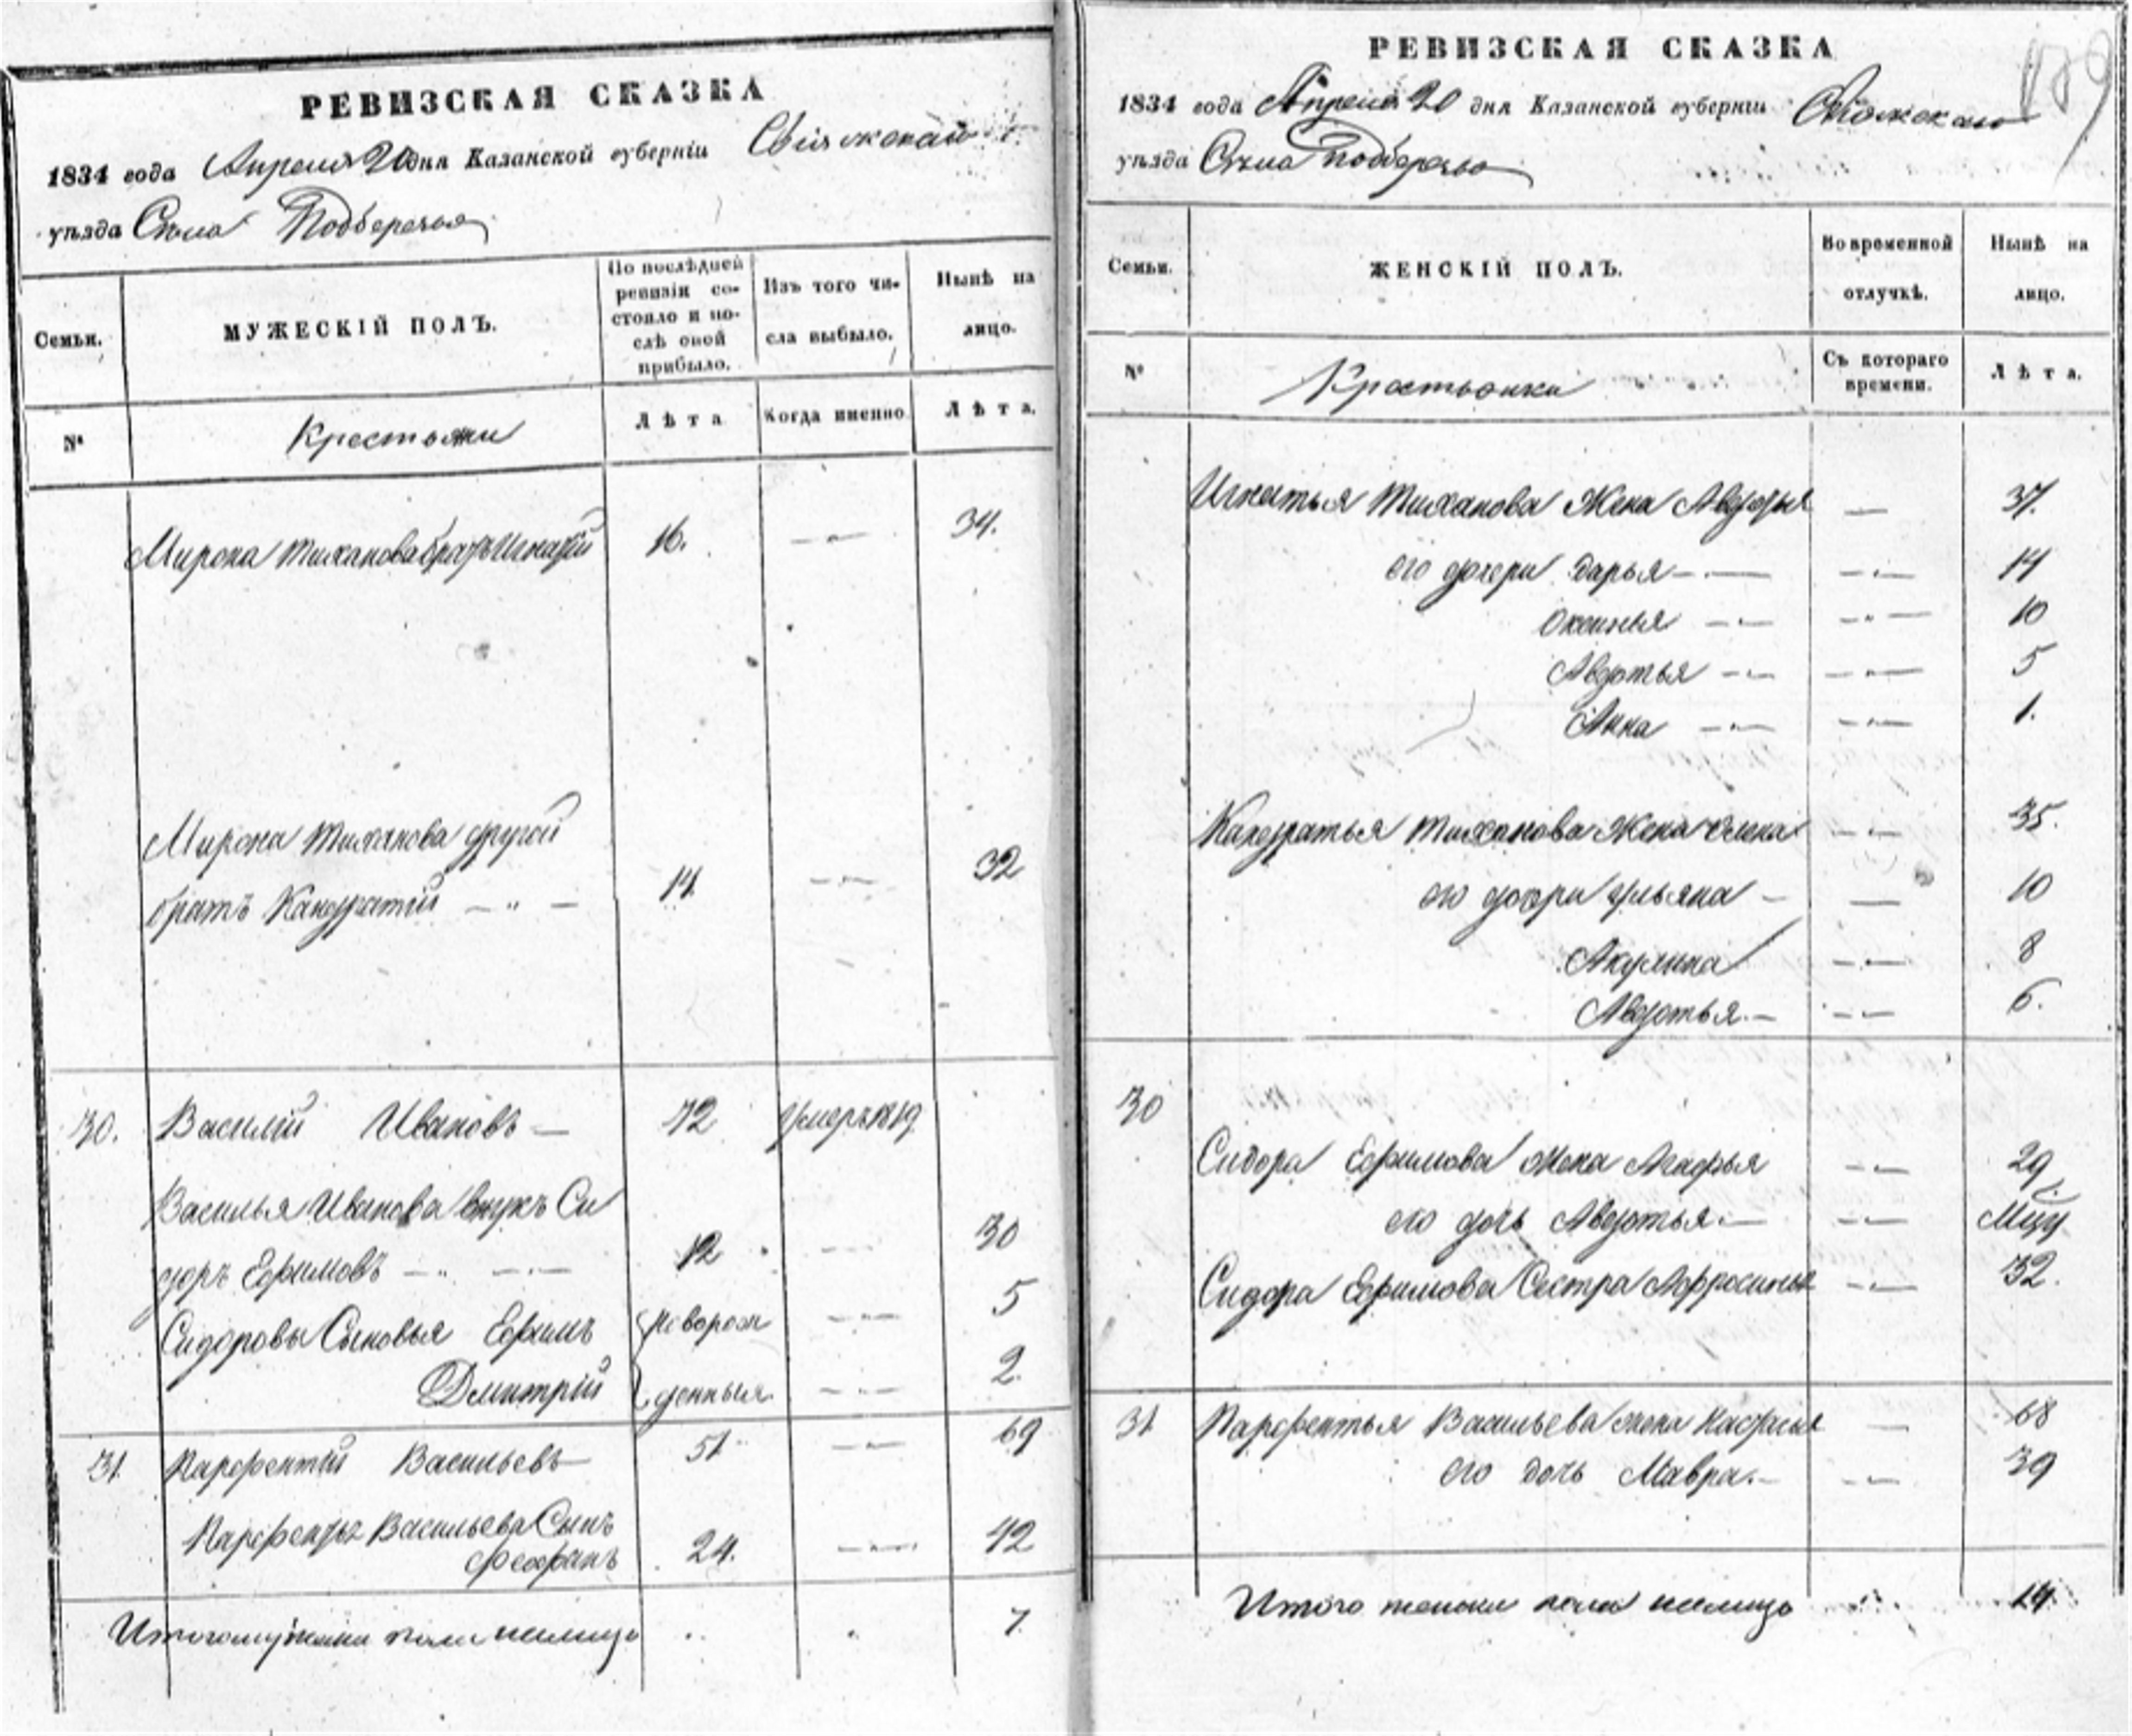 РЕВИЗСКАЯ СКАЗКА
1834 года Апреля 20 дня Казанской губерніи Свіяжскаго
уѣзда Сѣла Подберезья
Семьи.
МУЖЕСКІЙ ПОЛЪ.
По послѣдней
ревизіи со-
стояло и по-
слѣ оной
прибыло.
Изъ того чи-
сла выбыло.
Нынѣ на
лицо.
№
Крестьяни
Лѣта
Когда именно.
Лѣта.
Мирона Тиханова братъ Игнатій 16. 34.
Мирона Тиханова другой
братъ Кандратій 14. 32
30. Василій Ивановъ 72 умеръ 1819
Василья Иванова внукъ Си
доръ Ефимовъ 12 30
Сидоровы Сыновья Ефимъ новорож 5
Дмитрій денныя 2.
31 Парфентій Васильевъ 51 69
Парфентья Васильева Сынъ
Феофанъ 24. 42
Итого мужска пола налицо 7.
РЕВИЗСКАЯ СКАЗКА
179
1834 года Апреля 20 дня Казанской губерніи Свіяжскаго
уѣзда Сѣла Подберезья
Семьи.
ЖЕНСКІЙ ПОЛЪ.
Во временной
отлучкѣ.
Нынѣ на
лицо.
№
Крестьянки
Съ котораго
времени.
Лѣта.
Игнатья Тиханова Жена Авдотья 37.
его дочери Дарья 14
Оксинья 10
Авдотья 5
Анна 1.
Кандратья Тиханова Жена Олена 35.
его дочери Ульяна 10
Акулина 8
Авдотья 6.
30
Сидора Ефимова Жена Агафья 29
его дочь Авдотья
Сидора Ефимова Сестра Афросинья 32.
31 Парфентья Васильева жена Настасья 68
его дочь Мавра 39
Итого женска пола налицо 14